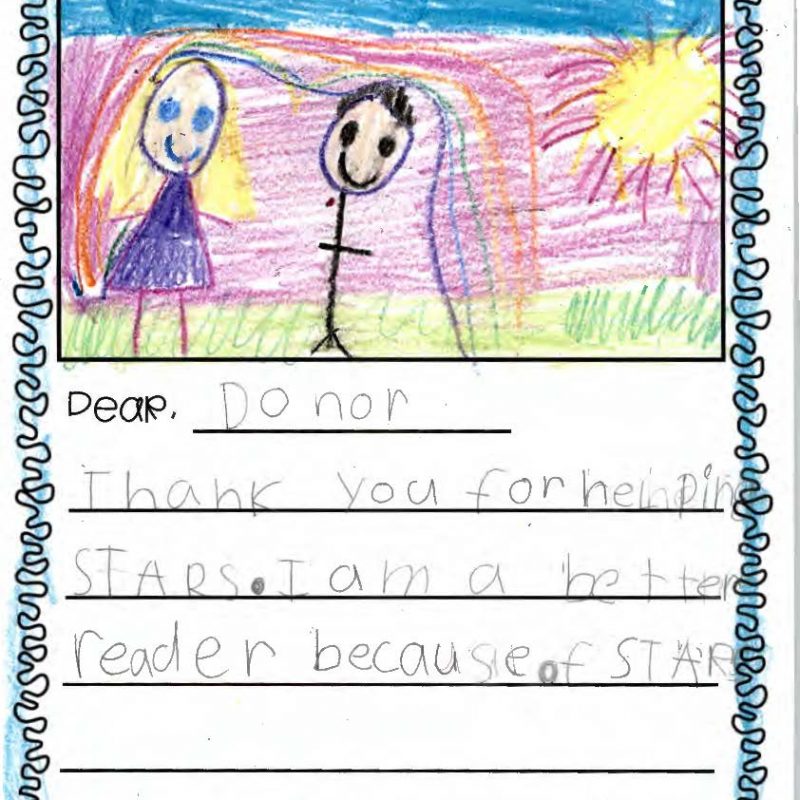 Dear, Donor
Thank you for helping
STARS. I am a better
reader because of STARS